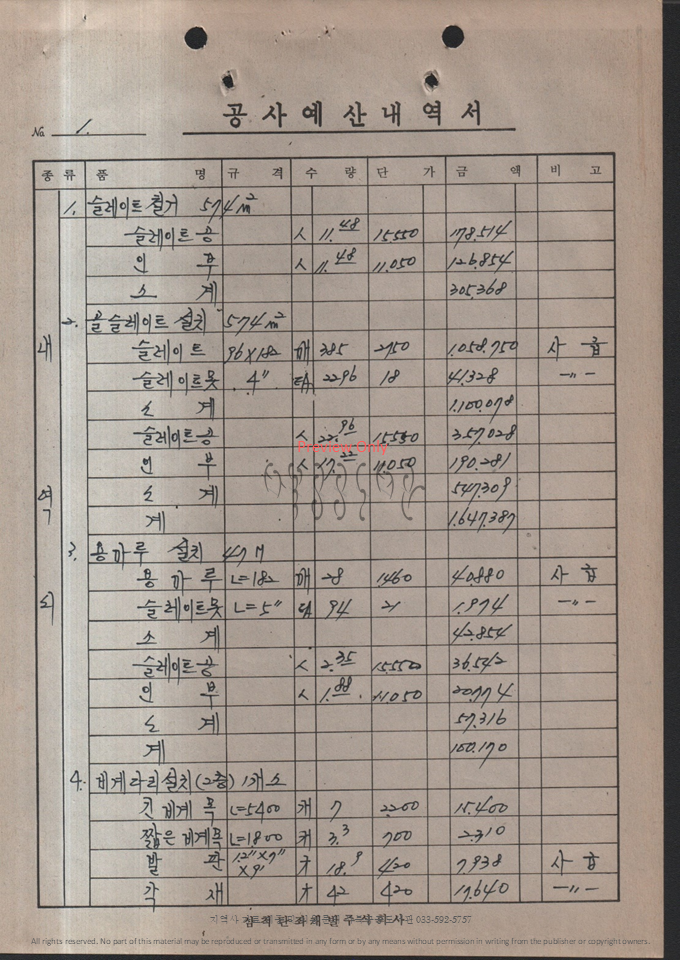 No 1.
공사예산내역서
종류 품 명 규 격 수 량 단 가 금 액 비 고
내
역
1. 슬레이트 철거 574m²
슬레이트공 人 11.48 15550 178.514
인 부 人 11.48 11.050 126.854
소 계 305.368
2. 골슬레이트 설치 574m²
슬레이트 96X182 매 385 2750 1.058.750 사 급
슬레이트못 4" EA 2296 18 41.328 -〃-
소 계 1.100.078
슬레이트공 人 22.96 15550 357.028
인 부 人 17.22 11.050 190.281
소 계 547.309
계 1.647.387
3. 용마루 설치 47M
용 마 루 L=182 매 28 1460 40.880 사 급
슬레이트못 L=5" EA 94 21 1.974 -〃-
소 계 42.854
슬레이트공 人 2.35 15.550 36.542
인 부 人 1.88 11.050 20.774
소 계 57.316
계 100.170
4. 비계다리설치(2층) 1개소
긴 비계 목 L=5400 개 7 2200 15.400
짧은 비계목 L=1800 개 3.3 700 2.310
발 판 1.2"X7"X9' 才 18.9 420 7.938 사 급
각 재 才 42 420 17.640 -〃-
Preview Only
033-592-5757
All rights reserved. No part of this material may be reproduced or transmitted in any form or by any means without permission in writing from the publisher or copyright owners.